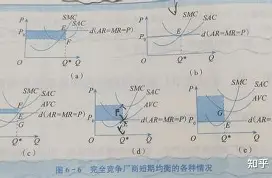 P SMC SAC
P₀ E d(AR=MR=P)
F
O Q* Q
(a)
P SMC SAC
P₀ E d(AR=MR=P)
O Q* Q
(b)
SMC SAC
AVC
E d(AR=MR=P)
G
Q* Q
(c)
P SMC SAC
AVC
P₀ F d(AR=MR=P)
E
O Q* Q
(d)
P SMC SAC
AVC
G
P₀ E d(AR=MR=P)
O Q* Q
(e)
图 6-6 完全竞争厂商短期均衡的各种情况
知乎